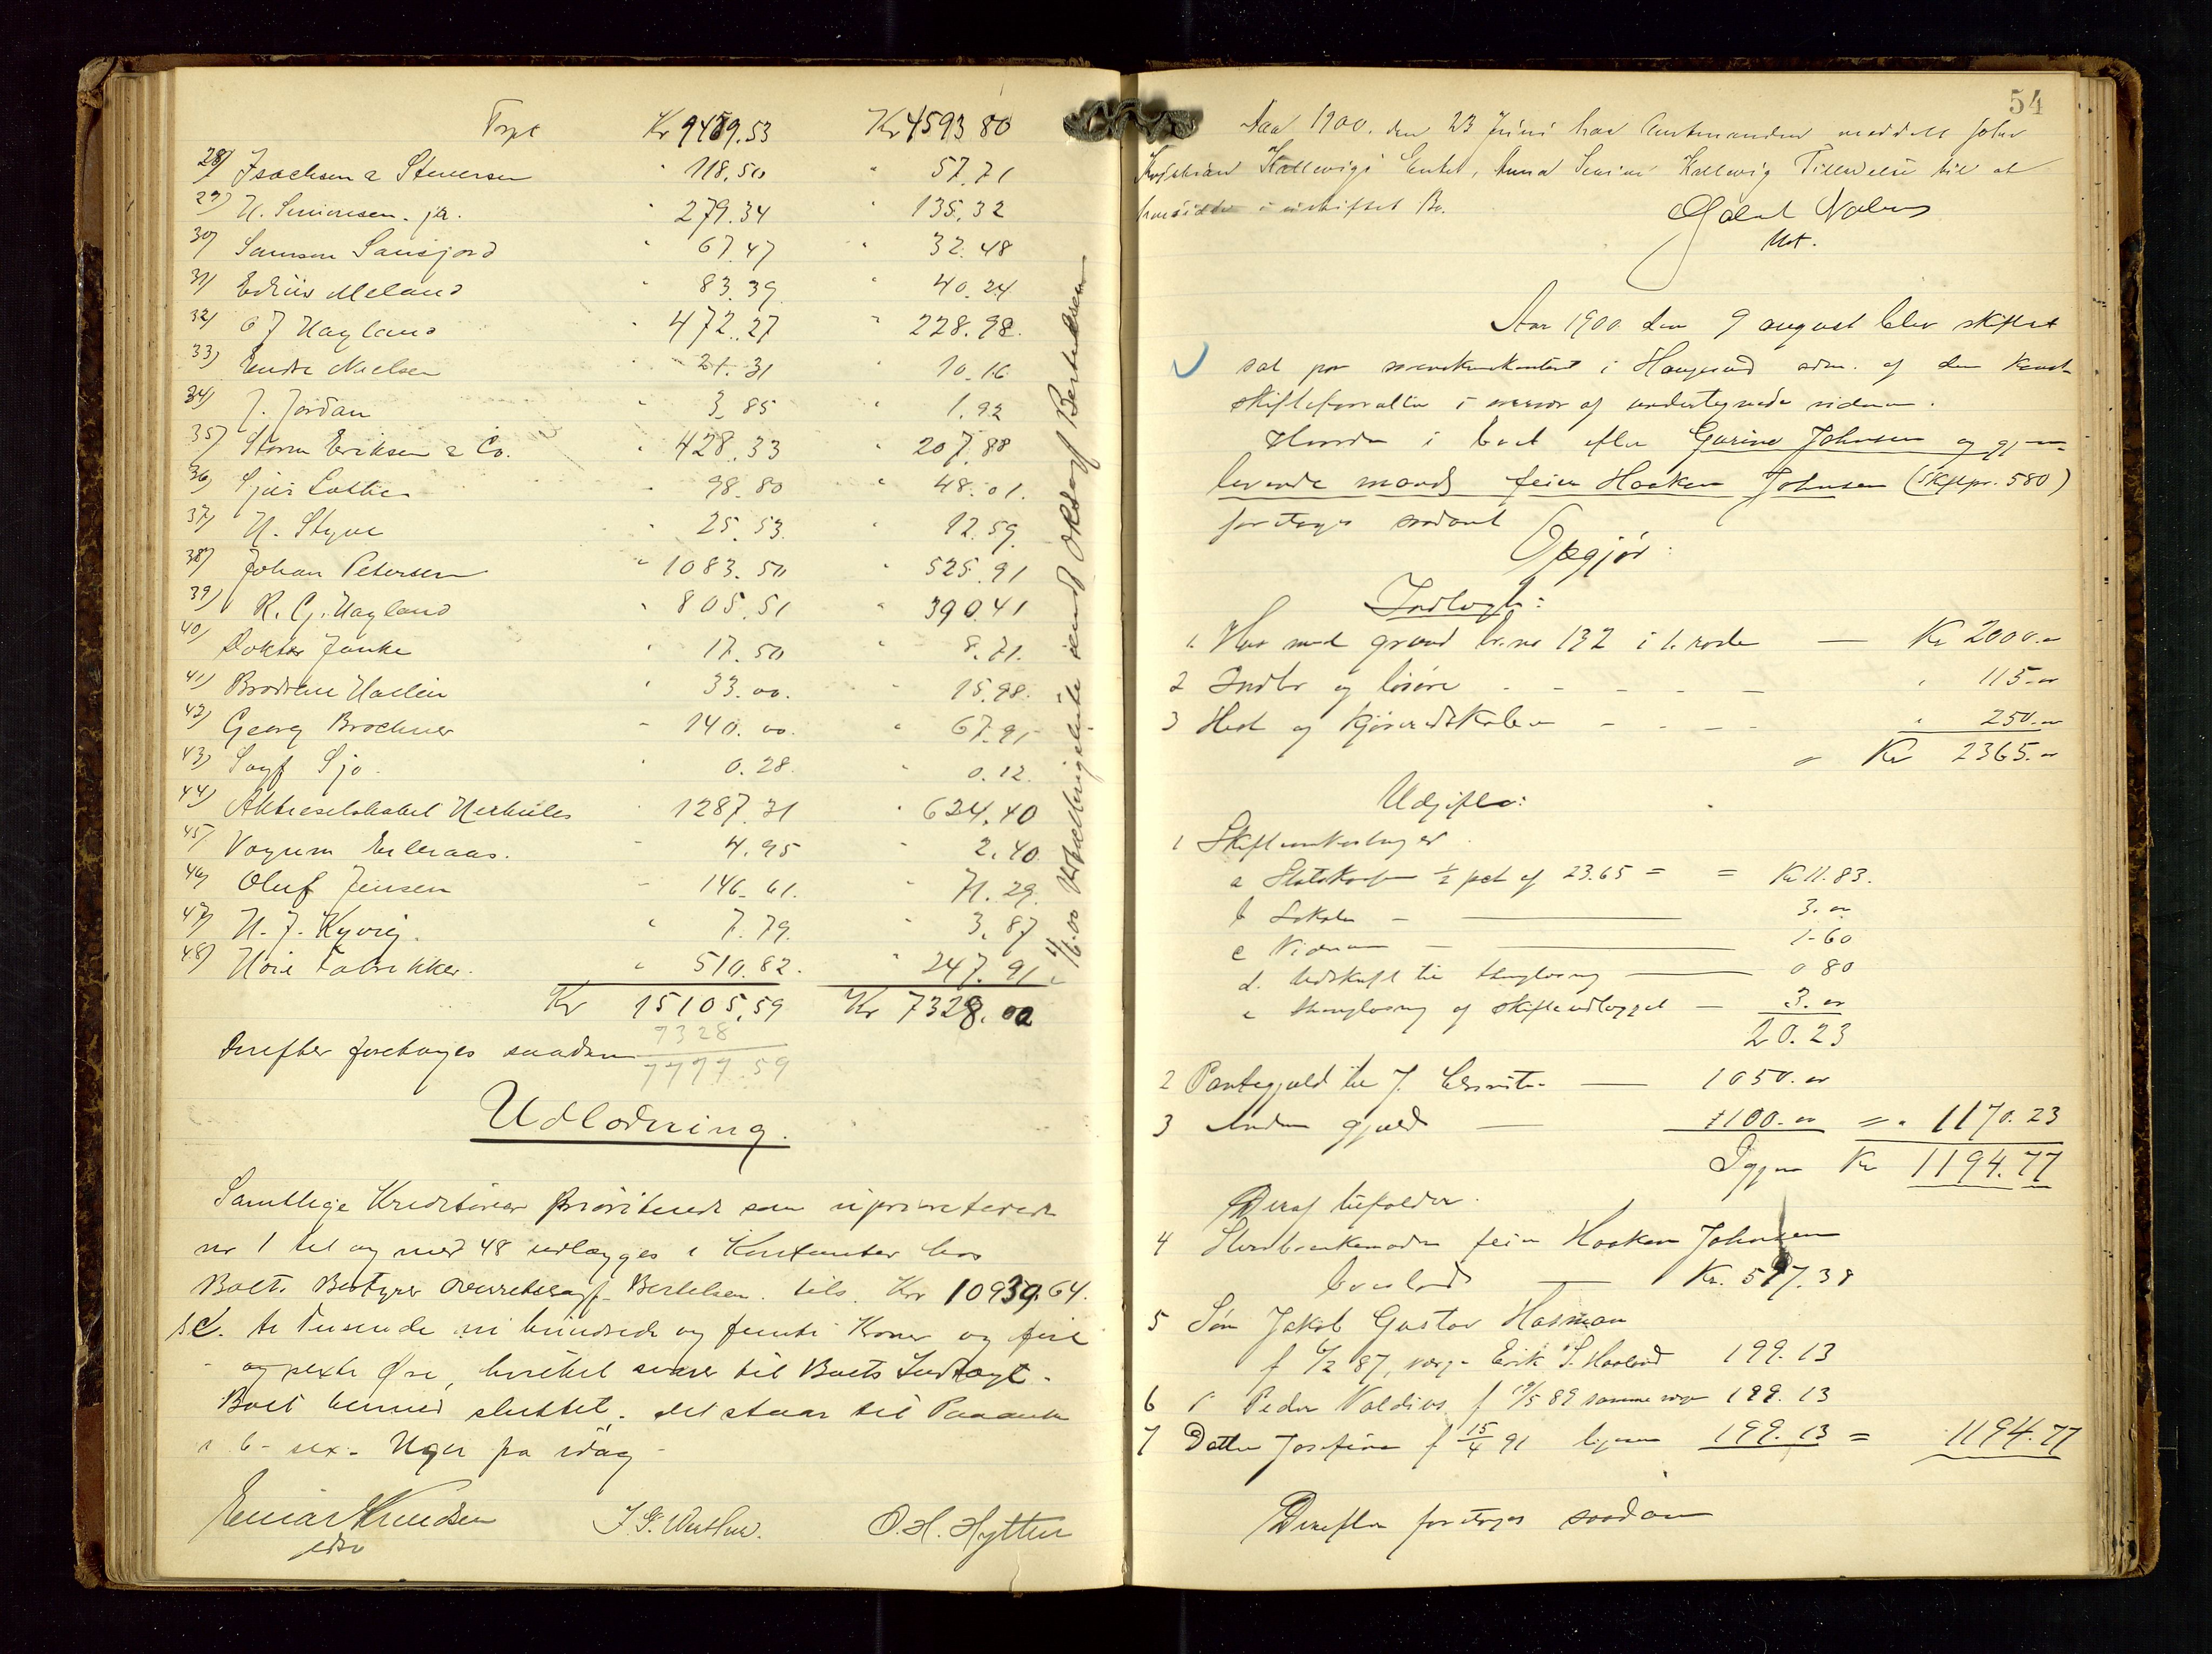 Trspt Kr 9489.53 Kr 4593 80
28) Isachsen & Stenersen " 118.50 " 57.71
29) H. Simonsen. jr. " 279.34 " 135.32
30) Samson Sausjord " 67.47 " 32.48
31) Edvin Meland " 83.39 " 40.24
32) O J Hagland " 472.27 " 228.98
33) Endre Nielsen " 21.31 " 10.16
34) J. Jordan " 3.85 " 1.92
35) Storm Eriksen & Co. " 428.33 " 207.88
36) " 98.80 " 48.01
37) H. Styve " 25.53 " 12.59
38) Johan Petersen " 1083.50 " 525.91
39) R. G. Hagland " 805.51 " 390 41
40) Doktor Janke " 17.50 " 8.71
41) Brødrene " 33.00 " 15.98
42) Georg Brochner " 140.00 " 67.91
43) Sagf Sjo. " 0.28 " 0.12
44) Aktieselskabet Herkules " 1287.31 " 624.40
45) Erleraas. " 4.95 " 2.40
46) Oluf Jensen " 146.61 " 71.29
47) H. J. Kyvig. " 7.79 " 3.87
48) Høie Fabrikker. " 510.82 " 247.91
Kr 15105,59 Kr 7328.00
7328
Derefter foretoges saadan
7777.59
Udlodning.
Samtlige Kreditorer prioriterede som uprioriterede
nr 1 til og med 48 udlægges i Kontanter hos
Boets Bestyrer Overretssagf. Bertelsen. tils. Kr 10939.64.
ti Tusende ni hundrede og Kroner og fire
og sexti Øre, hvilket svarer til Boets Indtægt.
Boet hermed sluttet. det staar til Paaanke
i 6 - sex - Uger fra idag
Einar Knudsen
edsv
O. H. Hytten
Bertelsen
54
Aar 1900. den 23 Juni har Amtmanden meddelt John
Kristian Kallevigs Enke, Anna Kallevig Tilladelse til at
hensidde i uskiftet Bo.
Aar 1900 den 9 august blev skifteret
sat paa sorenskriverkontoret i Haugesund adm. af den const.
skifteforvalter i overvær af undertegnede vidner.
Hvorda i boet efter Gurine Johnsen og gjen-
levende mand feier Haaken Johnsen (Skftpr. 580)
foretoges saadant
Opgjør:
Indtægt:
1. Hus med grund br.no 132 i 1. rode — Kr 2000.00
2 Indbo og løsøre - - - - - " 115.00
3 Hest og kjøreredskaber - - - - " 250.00
Kr 2365.00
Udgifter:
1 Skifteomkostninger
a Statskassen ½ pct af 23.65 = = Kr 11.83.
b Lokale — 3.00
c Vidner — 1.60
d. Udskrift til thinglæsning — 0 80
e thinglæsning af skifteudlægget — 3.00
20.23
2 Pantegjæld til J. — 1050.00
3 Anden gjæld — 100.00 = " 1170.23
Igjen Kr 1194.77
Deraf tilfalder
4 Sterboenkemanden feier Haaken Johnsen
boeslod — Kr. 597.38
5 Søn Jakob Gustav Hasman
f 6/2 87, værge Erik S. Haaland 199.13
6 " Peder Valdius f 19/5 89 samme værge 199.13
7 Datter Josefine f 15/4 91 ligesaa 199.13 = 1194.77
Derefter foretoges saadan